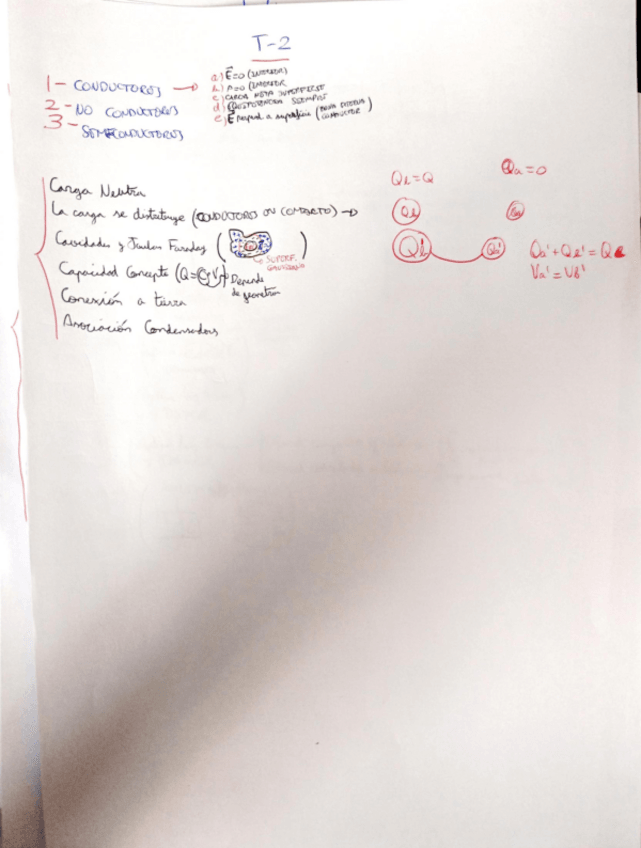 T-2
1- CONDUCTORES →
a) E=0 (INTERIOR)
b) ρ=0 (INTERIOR
c) CARGA NETA SUPERFICIE
d)
e) E perpend. a superficie (
CONDUCTOR
2- NO CONDUCTORES
3- SEMICONDUCTORES
Carga Neutra
La carga se distribuye (CONDUCTORES EN CONTACTO) →
Cavidades y Jaulas Faraday ( )
SUPERF.
GAUSSIANA
Capacidad Concepto (Q=C·V) Depende
de geometria
Conexión a tierra
Asociación Condensadores
Qb=Q
Qa=0
Qb
Qa
Qb'
Qa'
Qa'+Qb'=Q
Va'=Vb'